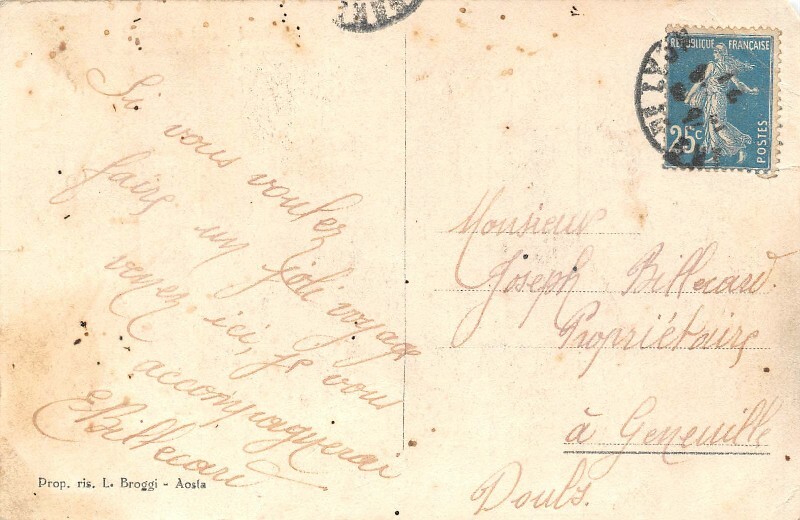 Si vous voulez
faire un joli voyage
venez ici, je vous
accompagnerai
EBillecard
Prop. ris. L. Broggi - Aosta
REPUBLIQUE FRANÇAISE
25c
POSTES
Monsieur
Joseph Billecard.
Propriétaire
à Geneuille
Doubs.